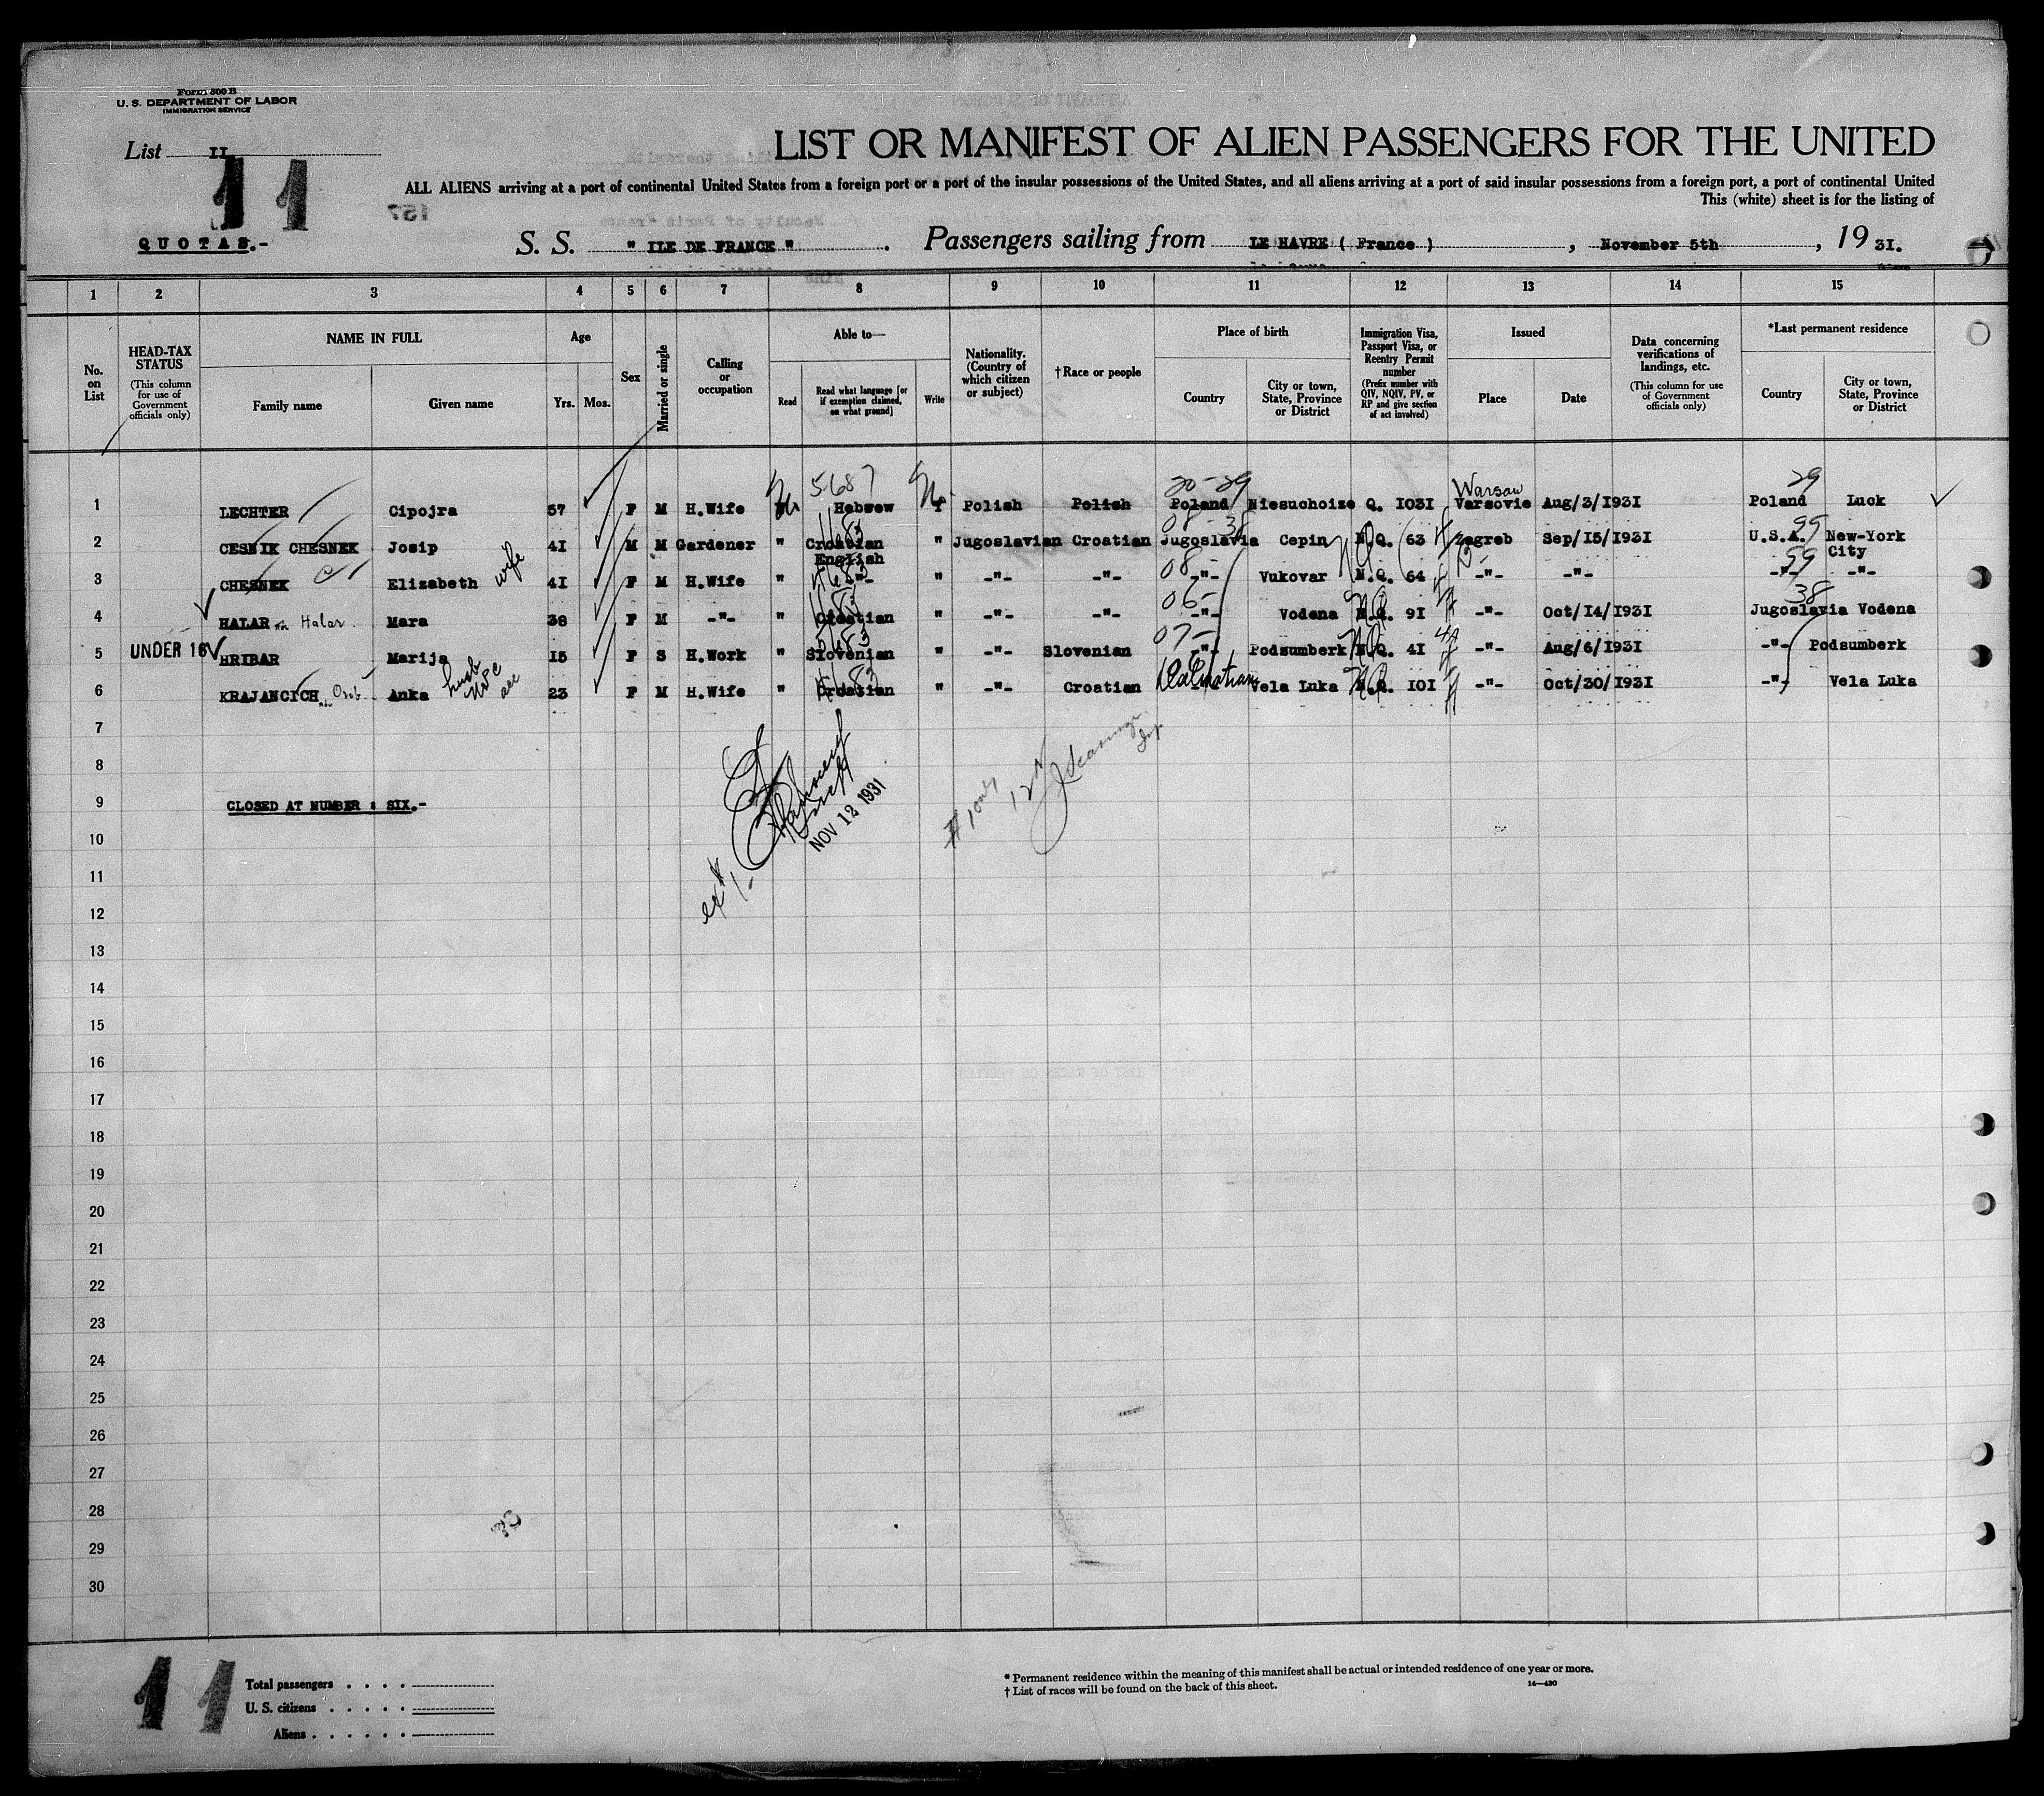 Form 500 B
U. S. DEPARTMENT OF LABOR
IMMIGRATION SERVICE
List II
11
QUOTAS.-
LIST OR MANIFEST OF ALIEN PASSENGERS FOR THE UNITED
ALL ALIENS arriving at a port of continental United States from a foreign port or a port of the insular possessions of the United States, and all aliens arriving at a port of said insular possessions from a foreign port, a port of continental United
This (white) sheet is for the listing of
S. S. " ILE DE FRANCE " . Passengers sailing from LE HAVRE ( France ) , November 5th , 19 31.
1 2 3 4 5 6 7 8 9 10 11 12 13 14 15
No. on List
HEAD-TAX STATUS (This column for use of Government officials only)
NAME IN FULL
Family name Given name
Age
Yrs. Mos.
Sex
Married or single
Calling or occupation
Able to—
Read Read what language [or if exemption claimed, on what ground] Write
Nationality. (Country of which citizen or subject)
†Race or people
Place of birth
Country City or town, State, Province or District
Immigration Visa, Passport Visa, or Reentry Permit number (Prefix number with QIV, NQIV, PV, or RP and give section of act involved)
Issued
Place Date
Data concerning verifications of landings, etc. (This column for use of Government officials only)
*Last permanent residence
Country City or town, State, Province or District
5687 20-29 Warsaw 29
1 LECHTER Cipojra 57 F M H.Wife Hebrew Polish Polish Poland Niesuchoize Q. 1031 Varsovie Aug/3/1931 Poland Luck
08-38 99
2 CESNIK CHESNEK Josip 41 M M Gardener " Croatian English " Jugoslavian Croatian Jugoslavia Cepin N.Q. 63 Zagreb Sep/15/1931 U.S.A. New-York City
08- 99
3 CHESNEK Elizabeth wife 41 F M H.Wife " -"- " -"- -"- -"- Vukovar N.Q. 64 -"- -"- -"- -"-
06- 38
4 HALAR Halar Mara 38 F M -"- " Croatian " -"- -"- -"- Vodena N.Q. 91 -"- Oct/14/1931 Jugoslavia Vodena
07-
5 UNDER 16 HRIBAR Marija 15 F S H.Work " Slovenian " -"- Slovenian -"- Podsumberk N.Q. 41 -"- Aug/6/1931 -"- Podsumberk
Dalmatian
6 KRAJANCICH Anka husb 23 F M H.Wife " Croatian " -"- Croatian -"- Vela Luka N.Q. 101 -"- Oct/30/1931 -"- Vela Luka
7
8
9 CLOSED AT NUMBER : SIX.-
NOV 12 1931
10
11
12
13
14
15
16
17
18
19
20
21
22
23
24
25
26
27
28
29
30
11
Total passengers
U. S. citizens
Aliens
* Permanent residence within the meaning of this manifest shall be actual or intended residence of one year or more.
† List of races will be found on the back of this sheet.
14—430